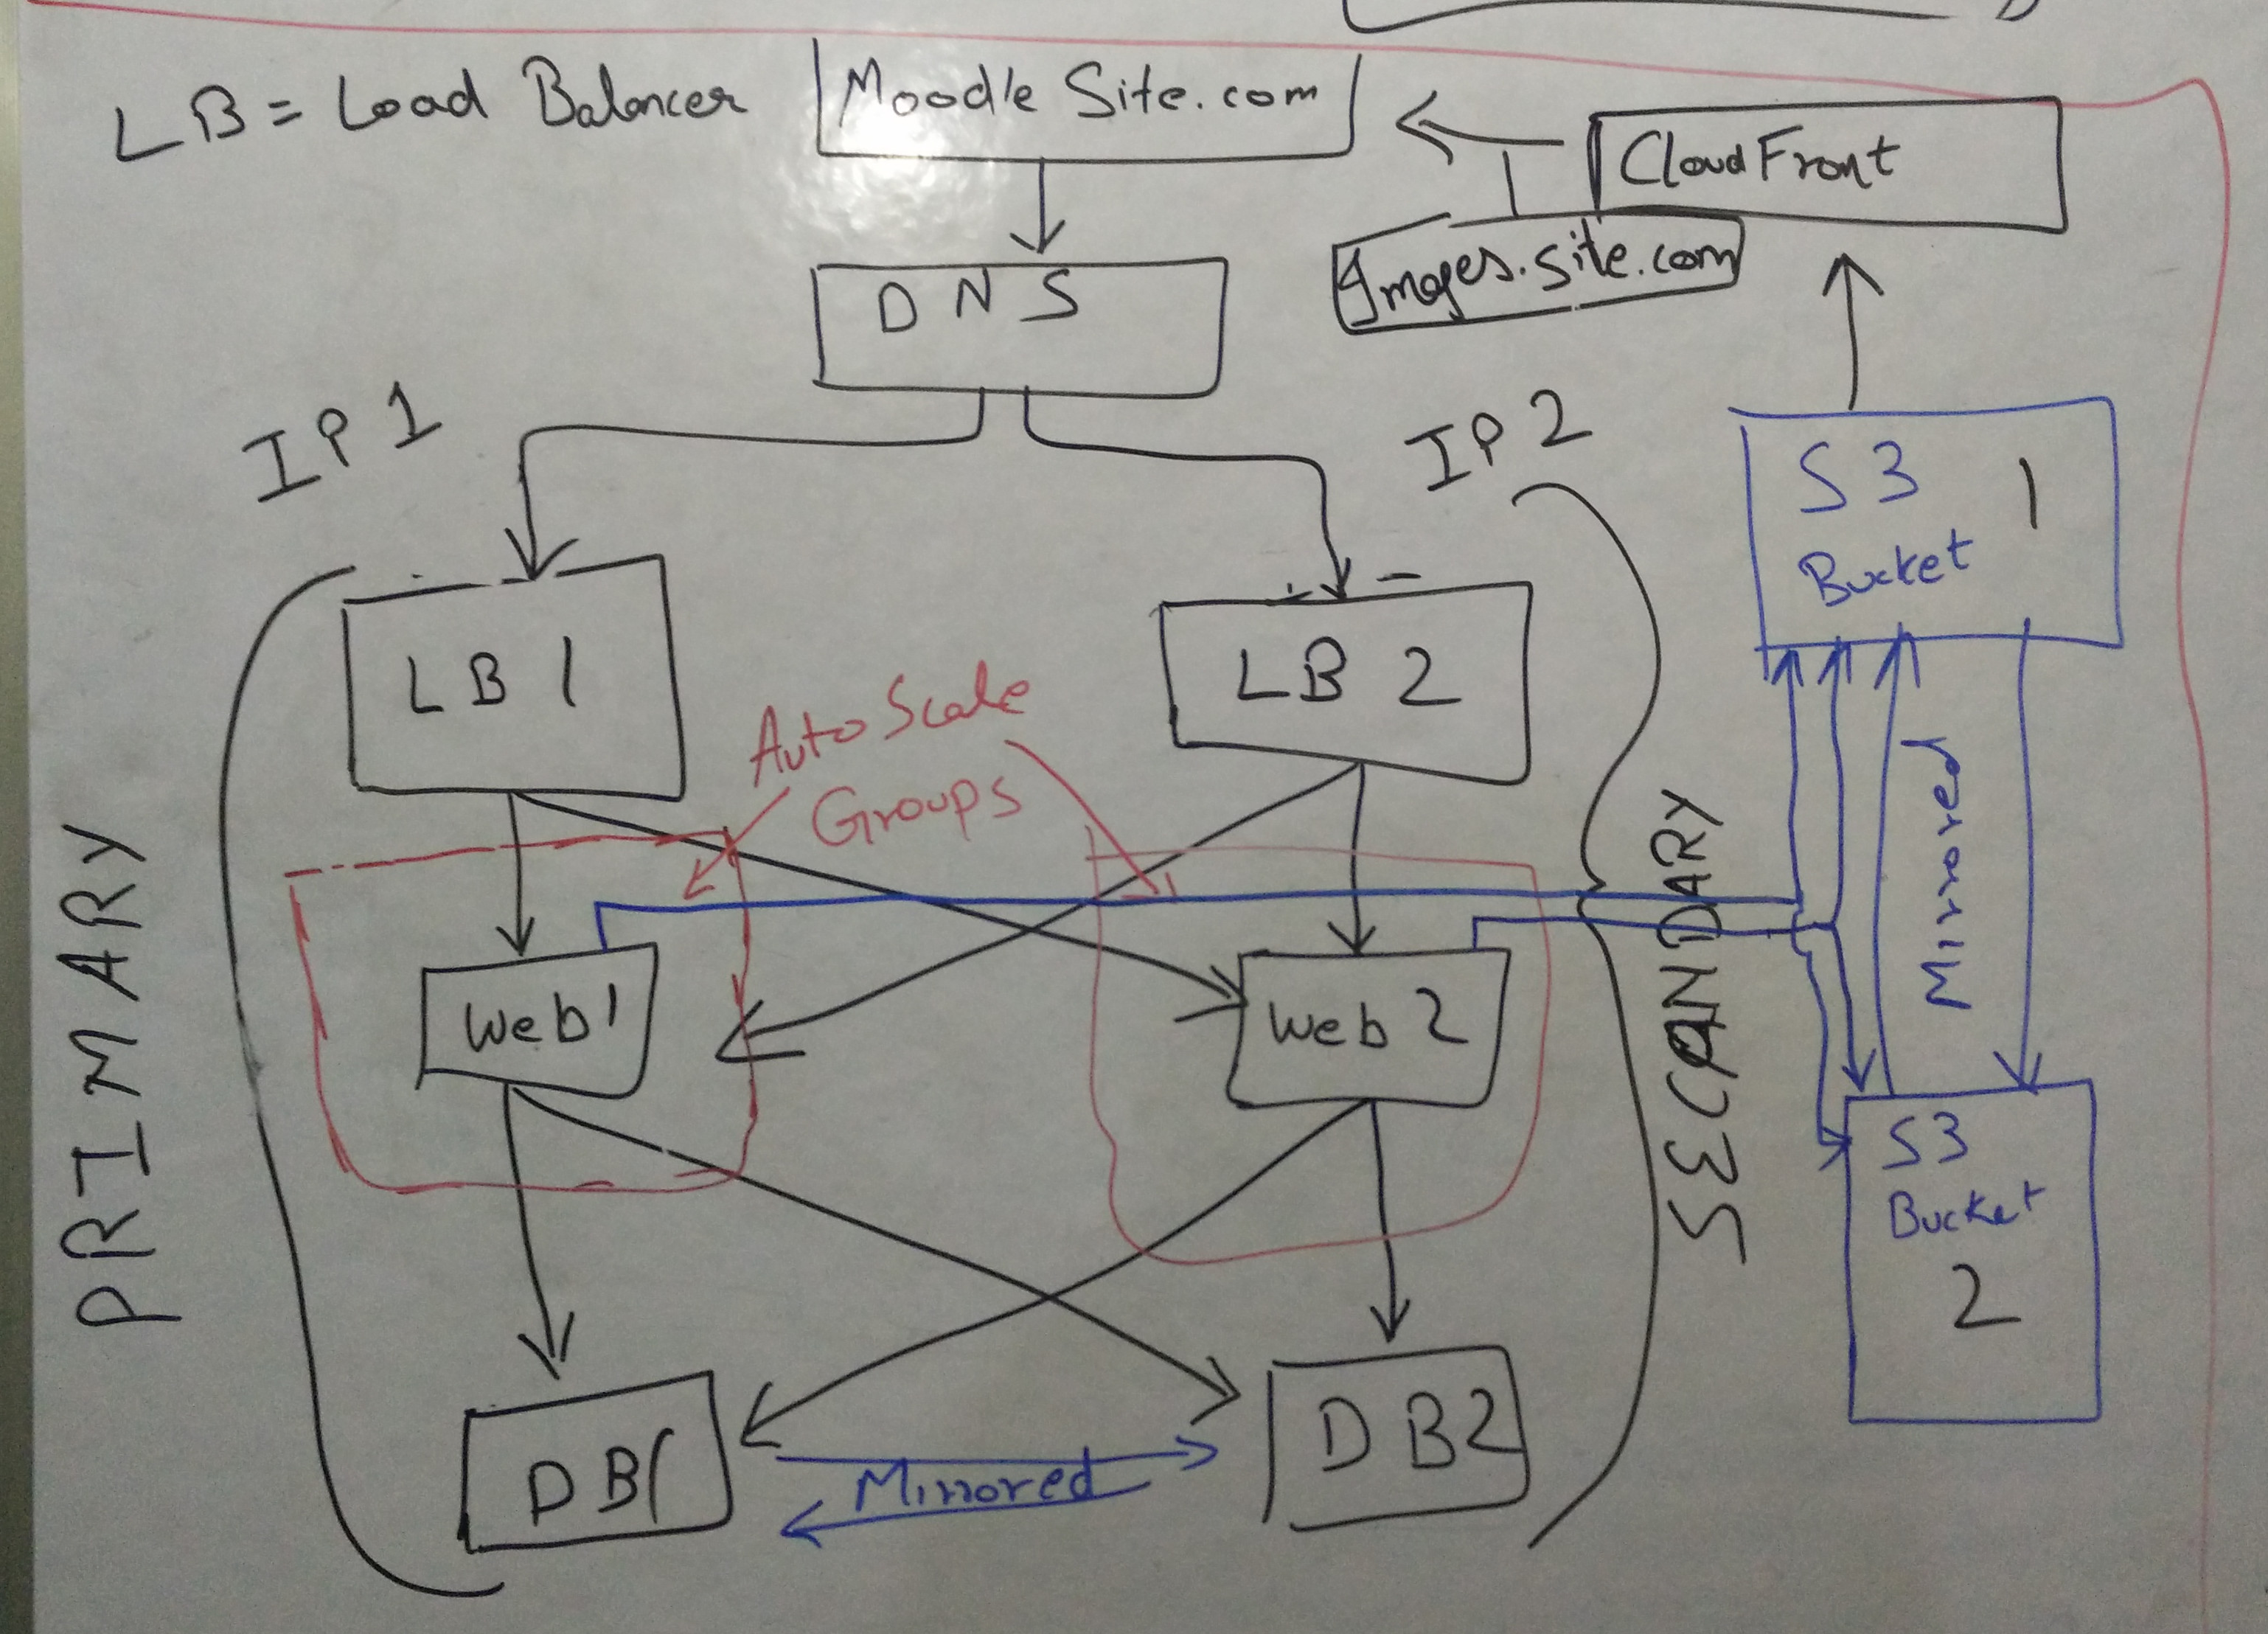 LB = Load Balancer
Moodle Site.com
CloudFront
Images.site.com
DNS
IP 1
IP 2
S3 1
Bucket
LB 1
LB 2
Auto Scale
Groups
PRIMARY
SECANDARY
Mirrored
Web 1
Web 2
S3
Bucket
2
DB1
DB2
Mirrored